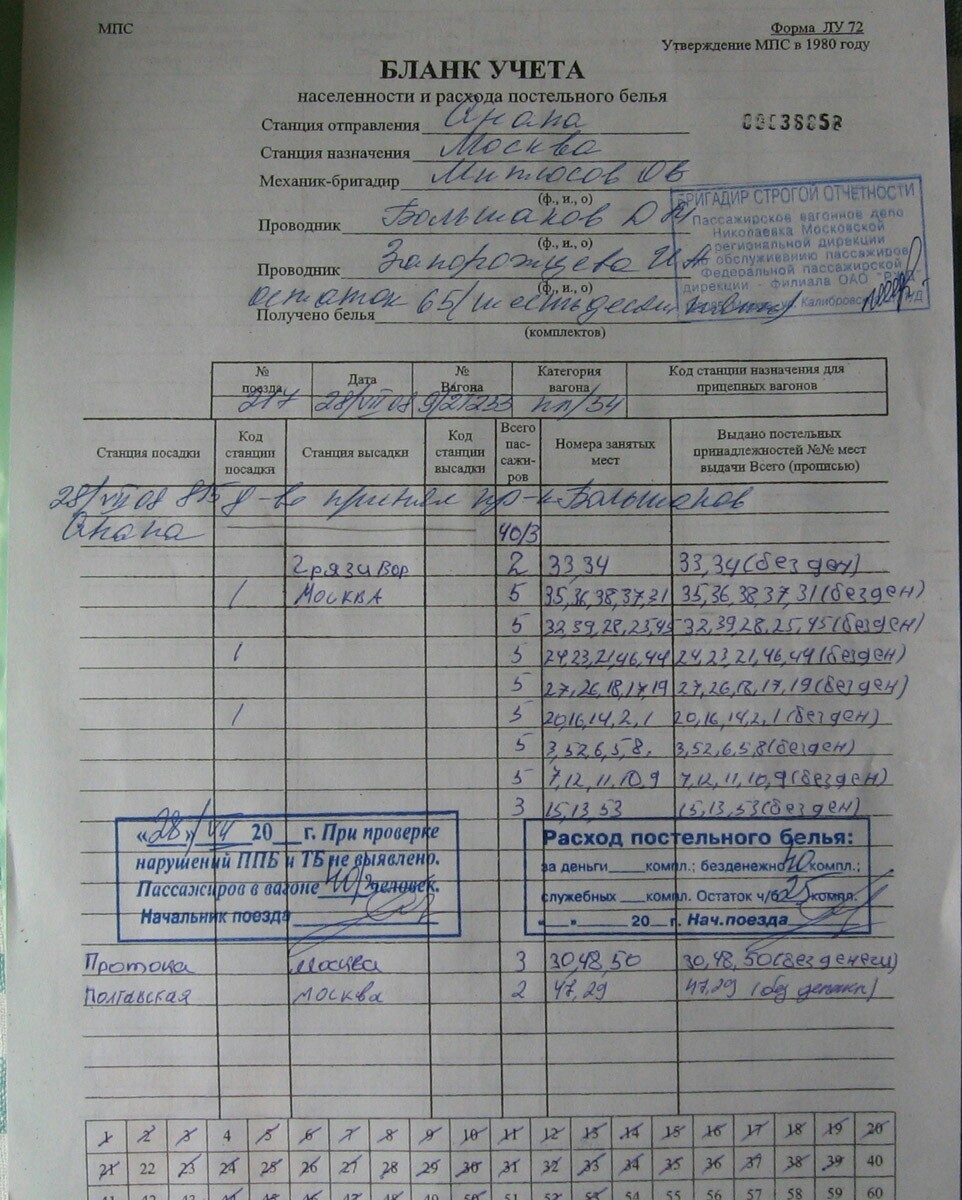 МПС
Форма ЛУ 72
Утверждение МПС в 1980 году
БЛАНК УЧЕТА
населенности и расхода постельного белья
Станция отправления Анапа
Станция назначения Москва
Механик-бригадир ОВ
(ф., и., о)
Проводник Большаков Д
(ф., и., о)
Проводник Запорожцева И А
(ф., и., о)
остаток 65/
Получено белья
(комплектов)
БРИГАДИР СТРОГОЙ ОТЧЕТНОСТИ
Пассажирское вагонное депо
Николаевка Московской
региональной дирекции
обслуживанию пассажиров
Федеральной пассажирской
дирекции - филиала ОАО
№ поезда Дата № Вагона Категория вагона Код станции назначения для прицепных вагонов
217 28/VII 08 9/21233 пл/54
Станция посадки Код станции посадки Станция высадки Код станции высадки Всего пас-сажи-ров Номера занятых мест Выдано постельных принадлежностей №№ мест выдачи Всего (прописью)
28/VII 08 принял пр-к Большаков
Анапа 40/3
Грязи Вор 2 33,34 33,34 (без ден)
Москва 5 35,36,38,37,31 35,36,38,37,31 (без ден)
5 32,39,28,25,45 32,39,28,25,45 (без ден)
5 24,23,21,46,44 24,23,21,46,44 (без ден)
5 27,26,18,17,19 27,26,18,17,19 (без ден)
5 20,16,14,2,1 20,16,14,2,1 (без ден)
5 3,52,6,5,8, 3,52,6,5,8 (без ден)
5 7,12,11,10,9 7,12,11,10,9 (без ден)
3 15,13,53 15,13,53 (без ден)
«28»/VII 20 г. При проверке
нарушений ППБ и ТБ не выявлено.
Пассажиров в вагоне 40/3 человек.
Начальник поезда
Расход постельного белья:
за деньги компл.; безденежно 40 компл.;
служебных компл. Остаток ч/б 25 компл.
20 г. Нач.поезда
Протока Москва 3 30,48,50 30,48,50 (без денег)
Полтавская Москва 2 47,29 47,29
1 2 3 4 5 6 7 8 9 10 11 12 13 14 15 16 17 18 19 20
21 22 23 24 25 26 27 28 29 30 31 32 33 34 35 36 37 38 39 40